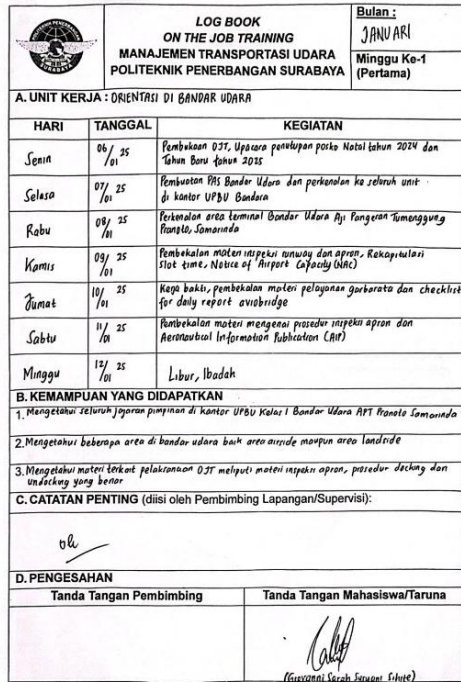 POLITEKNIK PENERBANGAN
SURABAYA
LOG BOOK
ON THE JOB TRAINING
MANAJEMEN TRANSPORTASI UDARA
POLITEKNIK PENERBANGAN SURABAYA
Bulan :
JANUARI
Minggu Ke-1
(Pertama)
A. UNIT KERJA : ORIENTASI DI BANDAR UDARA
HARI TANGGAL KEGIATAN
Senin 06/01 25 Pembukaan OJT, Upacara penutupan posko Natal tahun 2024 dan
Tahun Baru tahun 2025
Selasa 07/01 25 Pembuatan PAS Bandar Udara dan perkenalan ke seluruh unit
di kantor UPBU Bandara
Rabu 08/01 25 Perkenalan area terminal Bandar Udara Aji Pangeran Tumenggung
Pranoto, Samarinda
Kamis 09/01 25 Pembekalan materi inspeksi runway dan apron, Rekapitulasi
Slot time, Notice of Airport Capacity (NAC)
Jumat 10/01 25 Kerja bakti, pembekalan materi pelayanan garbarata dan checklist
for daily report aviobridge
Sabtu 11/01 25 Pembekalan materi mengenai prosedur inspeksi apron dan
Aeronautical Information Publication (AIP)
Minggu 12/01 25 Libur, Ibadah
B. KEMAMPUAN YANG DIDAPATKAN
1. Mengetahui seluruh jajaran pimpinan di kantor UPBU Kelas I Bandar Udara APT Pranoto Samarinda
2. Mengetahui beberapa area di bandar udara baik area airside maupun area landside
3. Mengetahui materi terkait pelaksanaan OJT meliputi materi inspeksi apron, prosedur docking dan
undocking yang benar
C. CATATAN PENTING (diisi oleh Pembimbing Lapangan/Supervisi):
D. PENGESAHAN
Tanda Tangan Pembimbing Tanda Tangan Mahasiswa/Taruna
(Giovanni Sarah Suryani